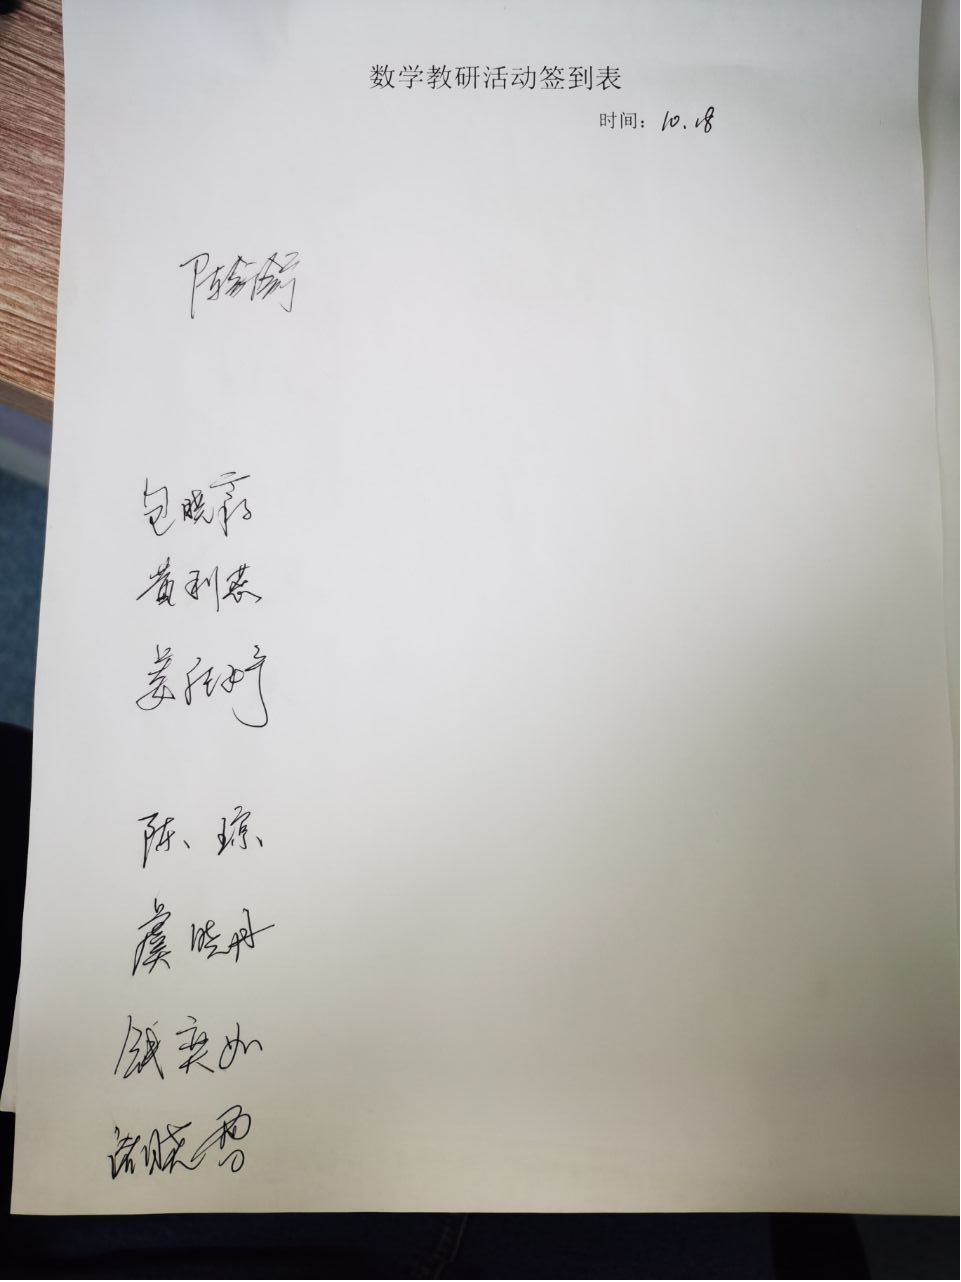 数学教研活动签到表
时间：10.18
陈
包晓
黄利燕
姜
陈琼
虞晓丹
钱奕如
诸晓雪